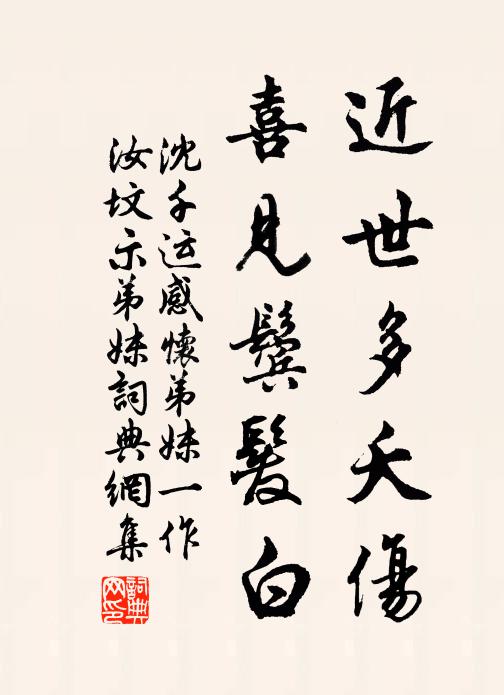 近世多夭傷
喜見鬢髮白
沈千运感懷弟妹一作
汝坟示弟妹詞典網集
詞典网印